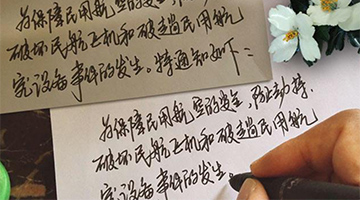 为保障民用航空的安全
破坏民航飞机和破坏民用航
空设备事件的发生。特通知如下：
为保障民用航空的安全，防止劫持、
破坏民航飞机和破坏民用航
空设备事件的发生。